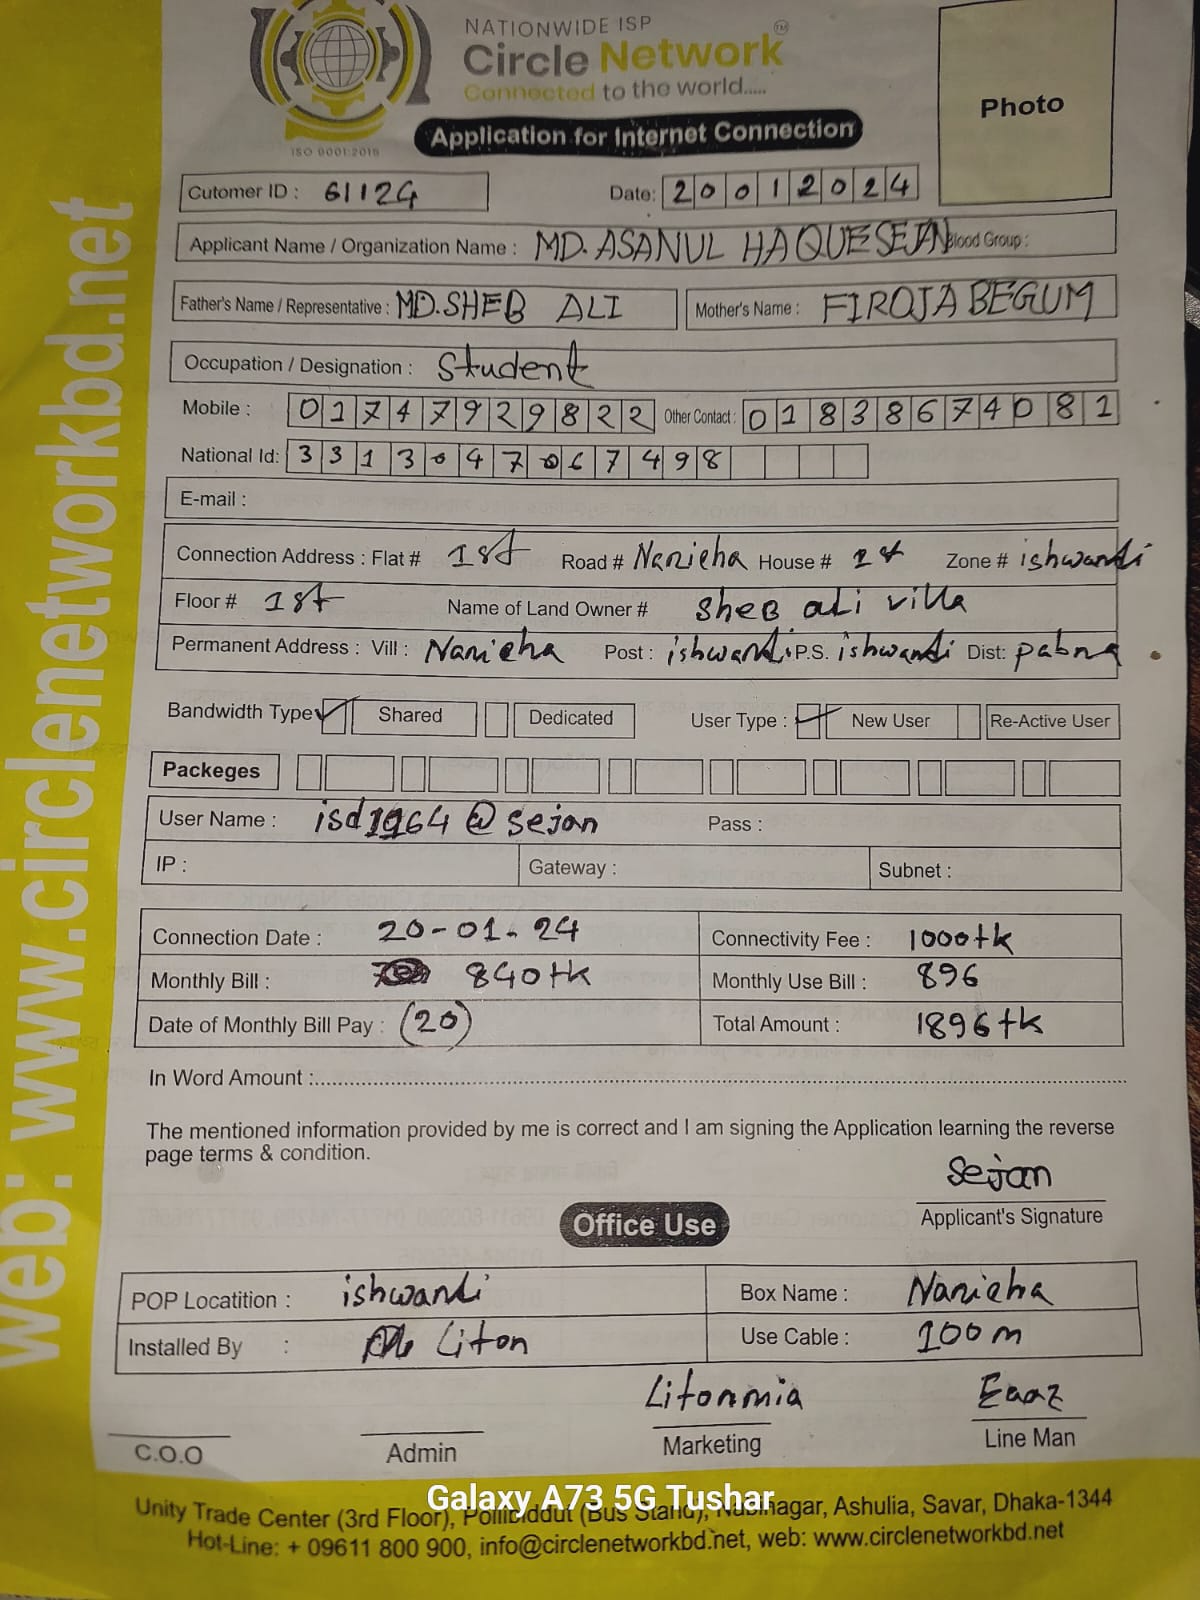 NATIONWIDE ISP
Circle Network TM
Connected to the world.....
ISO 9001:2015
Application for Internet Connection
Photo
Cutomer ID : 61124 Date: 20012024
Applicant Name / Organization Name : MD. ASANUL HAQUE SEJAN Blood Group :
Father's Name / Representative : MD. SHEB ALI Mother's Name : FIROJA BEGUM
Occupation / Designation : Student
Mobile : 01747929822 Other Contact : 01838674081
National Id: 3313047067498
E-mail :
Connection Address : Flat # 1st Road # Naricha House # 1st Zone # ishwardi
Floor # 1st Name of Land Owner # sheB ali villa
Permanent Address : Vill : Naricha Post : ishwardi P.S. ishwardi Dist: pabna
Bandwidth Type Shared Dedicated User Type : New User Re-Active User
Packeges
User Name : isd1964@sejan Pass :
IP : Gateway : Subnet :
Connection Date : 20-01-24 Connectivity Fee : 1000tk
Monthly Bill : 840tk Monthly Use Bill : 896
Date of Monthly Bill Pay : (20) Total Amount : 1896tk
In Word Amount :
The mentioned information provided by me is correct and I am signing the Application learning the reverse
page terms & condition.
Sejan
Applicant's Signature
Office Use
POP Locatition : ishwardi Box Name : Naricha
Installed By : Liton Use Cable : 100m
Litonmia Eaaz
C.O.O Admin Marketing Line Man
Galaxy A73 5G Tushar
Unity Trade Center (3rd Floor), (Bus Stand), Nabinagar, Ashulia, Savar, Dhaka-1344
Hot-Line: + 09611 800 900, info@circlenetworkbd.net, web: www.circlenetworkbd.net
web: www.circlenetworkbd.net